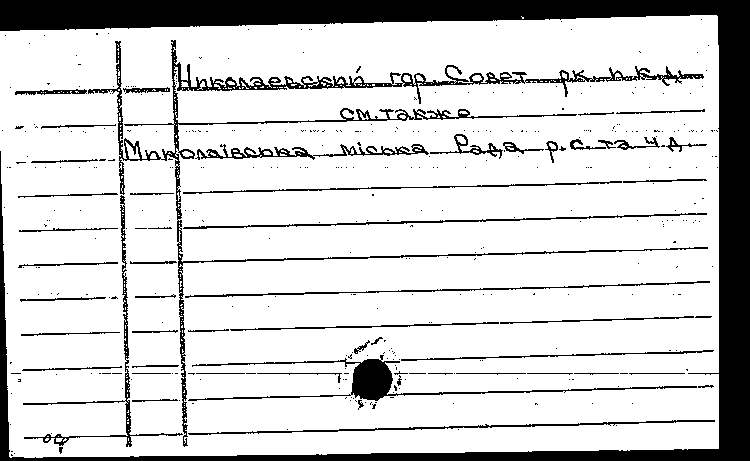 Николаевский гор. Совет рк. п. к.д.
см. также
Миколаївська міська Рада р.с. та ч.д.